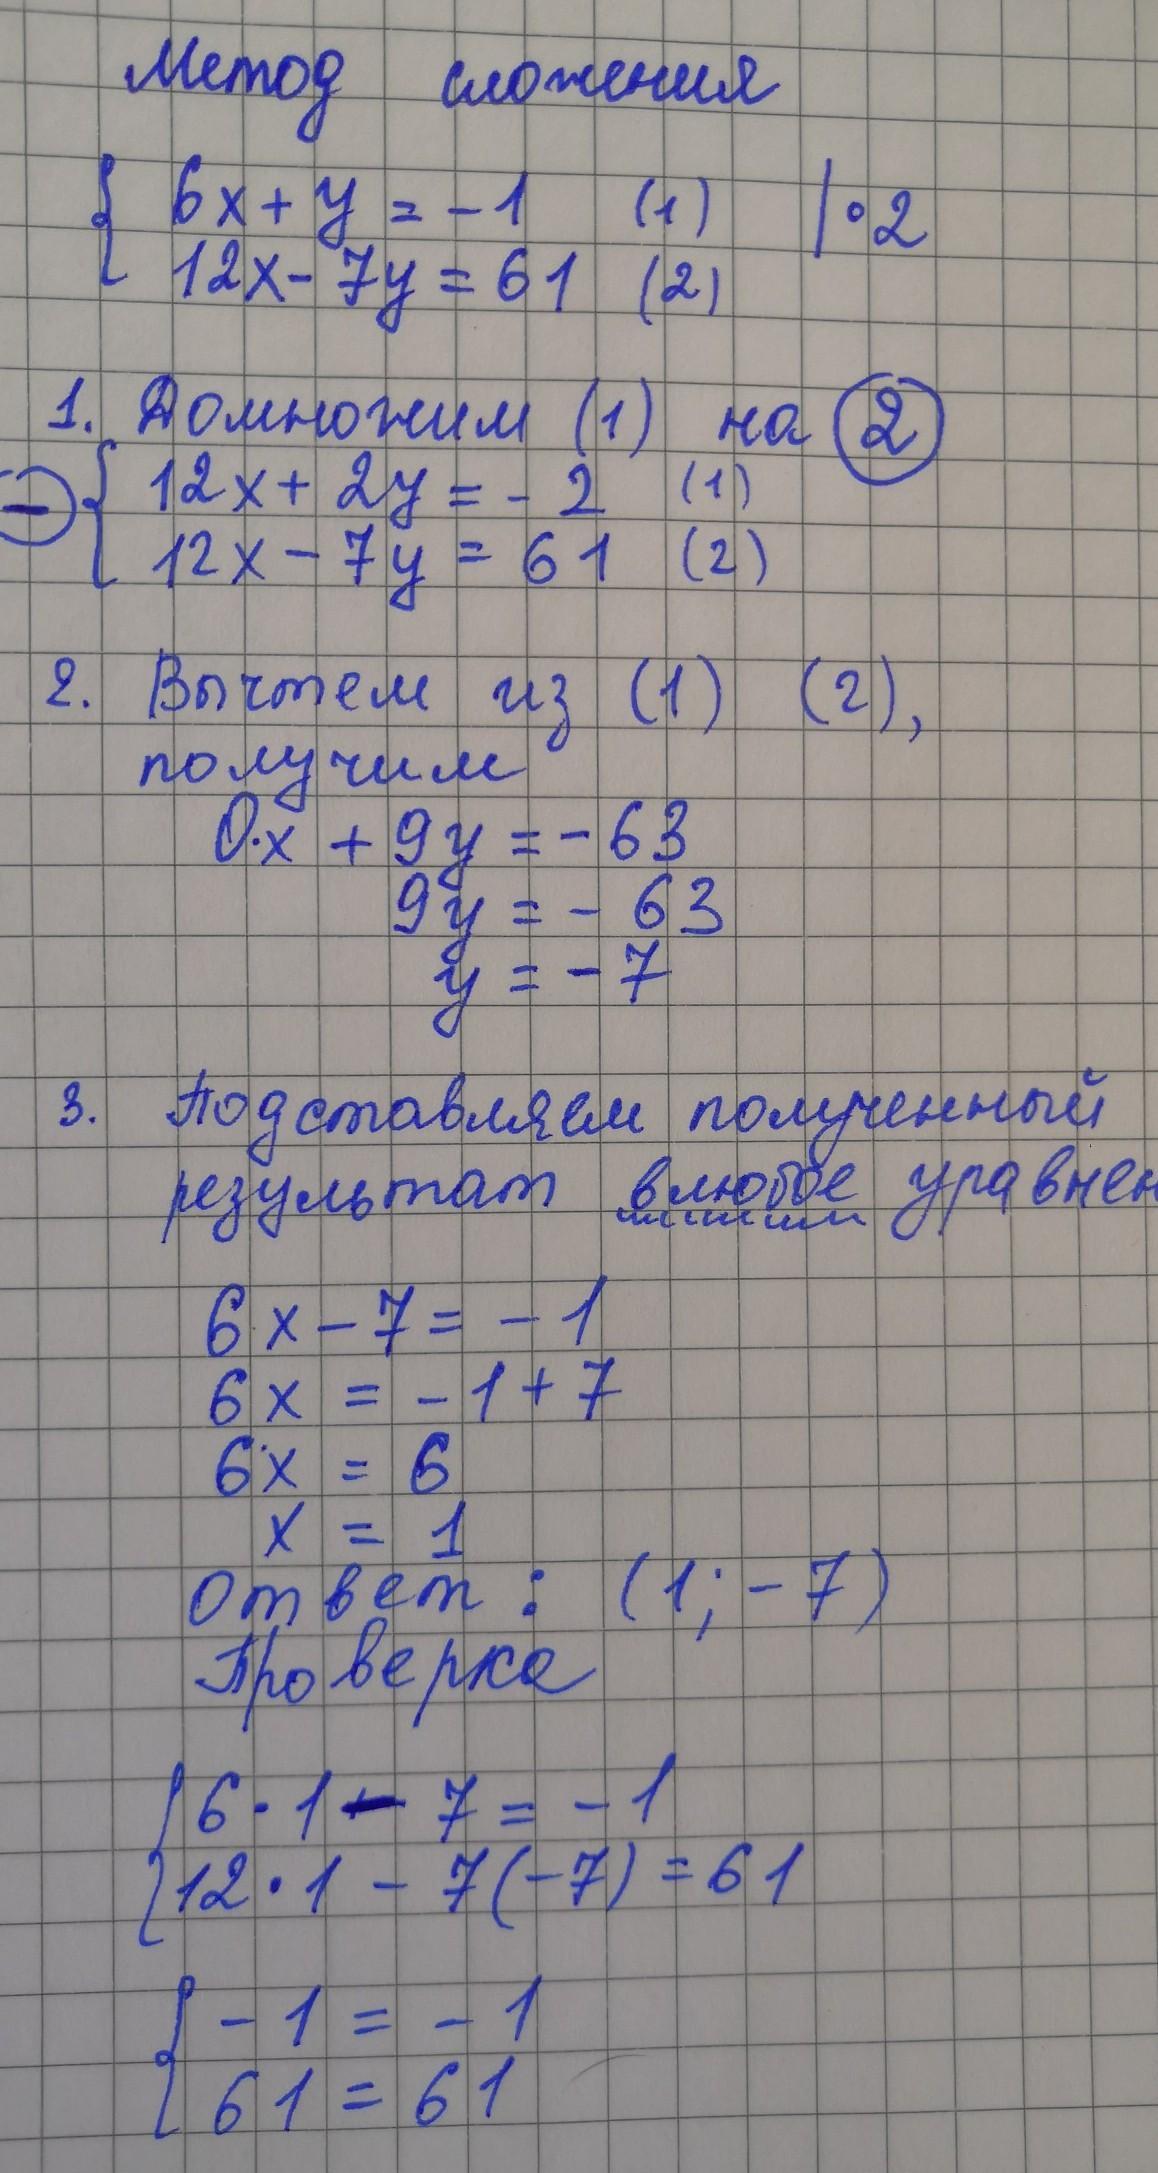 Метод сложения
{ 6x + y = -1 (1) | · 2
12x - 7y = 61 (2)
1. Домножим (1) на 2
- { 12x + 2y = - 2 (1)
12x - 7y = 61 (2)
2. Вычтем из (1) (2),
получим
0·x + 9y = - 63
9y = - 63
y = - 7
3. Подставляем полученный
результат в любое уравнен
6x - 7 = - 1
6x = - 1 + 7
6x = 6
x = 1
Ответ : (1; - 7)
Проверка
{ 6 · 1 - 7 = - 1
12 · 1 - 7(-7) = 61
{ - 1 = - 1
61 = 61